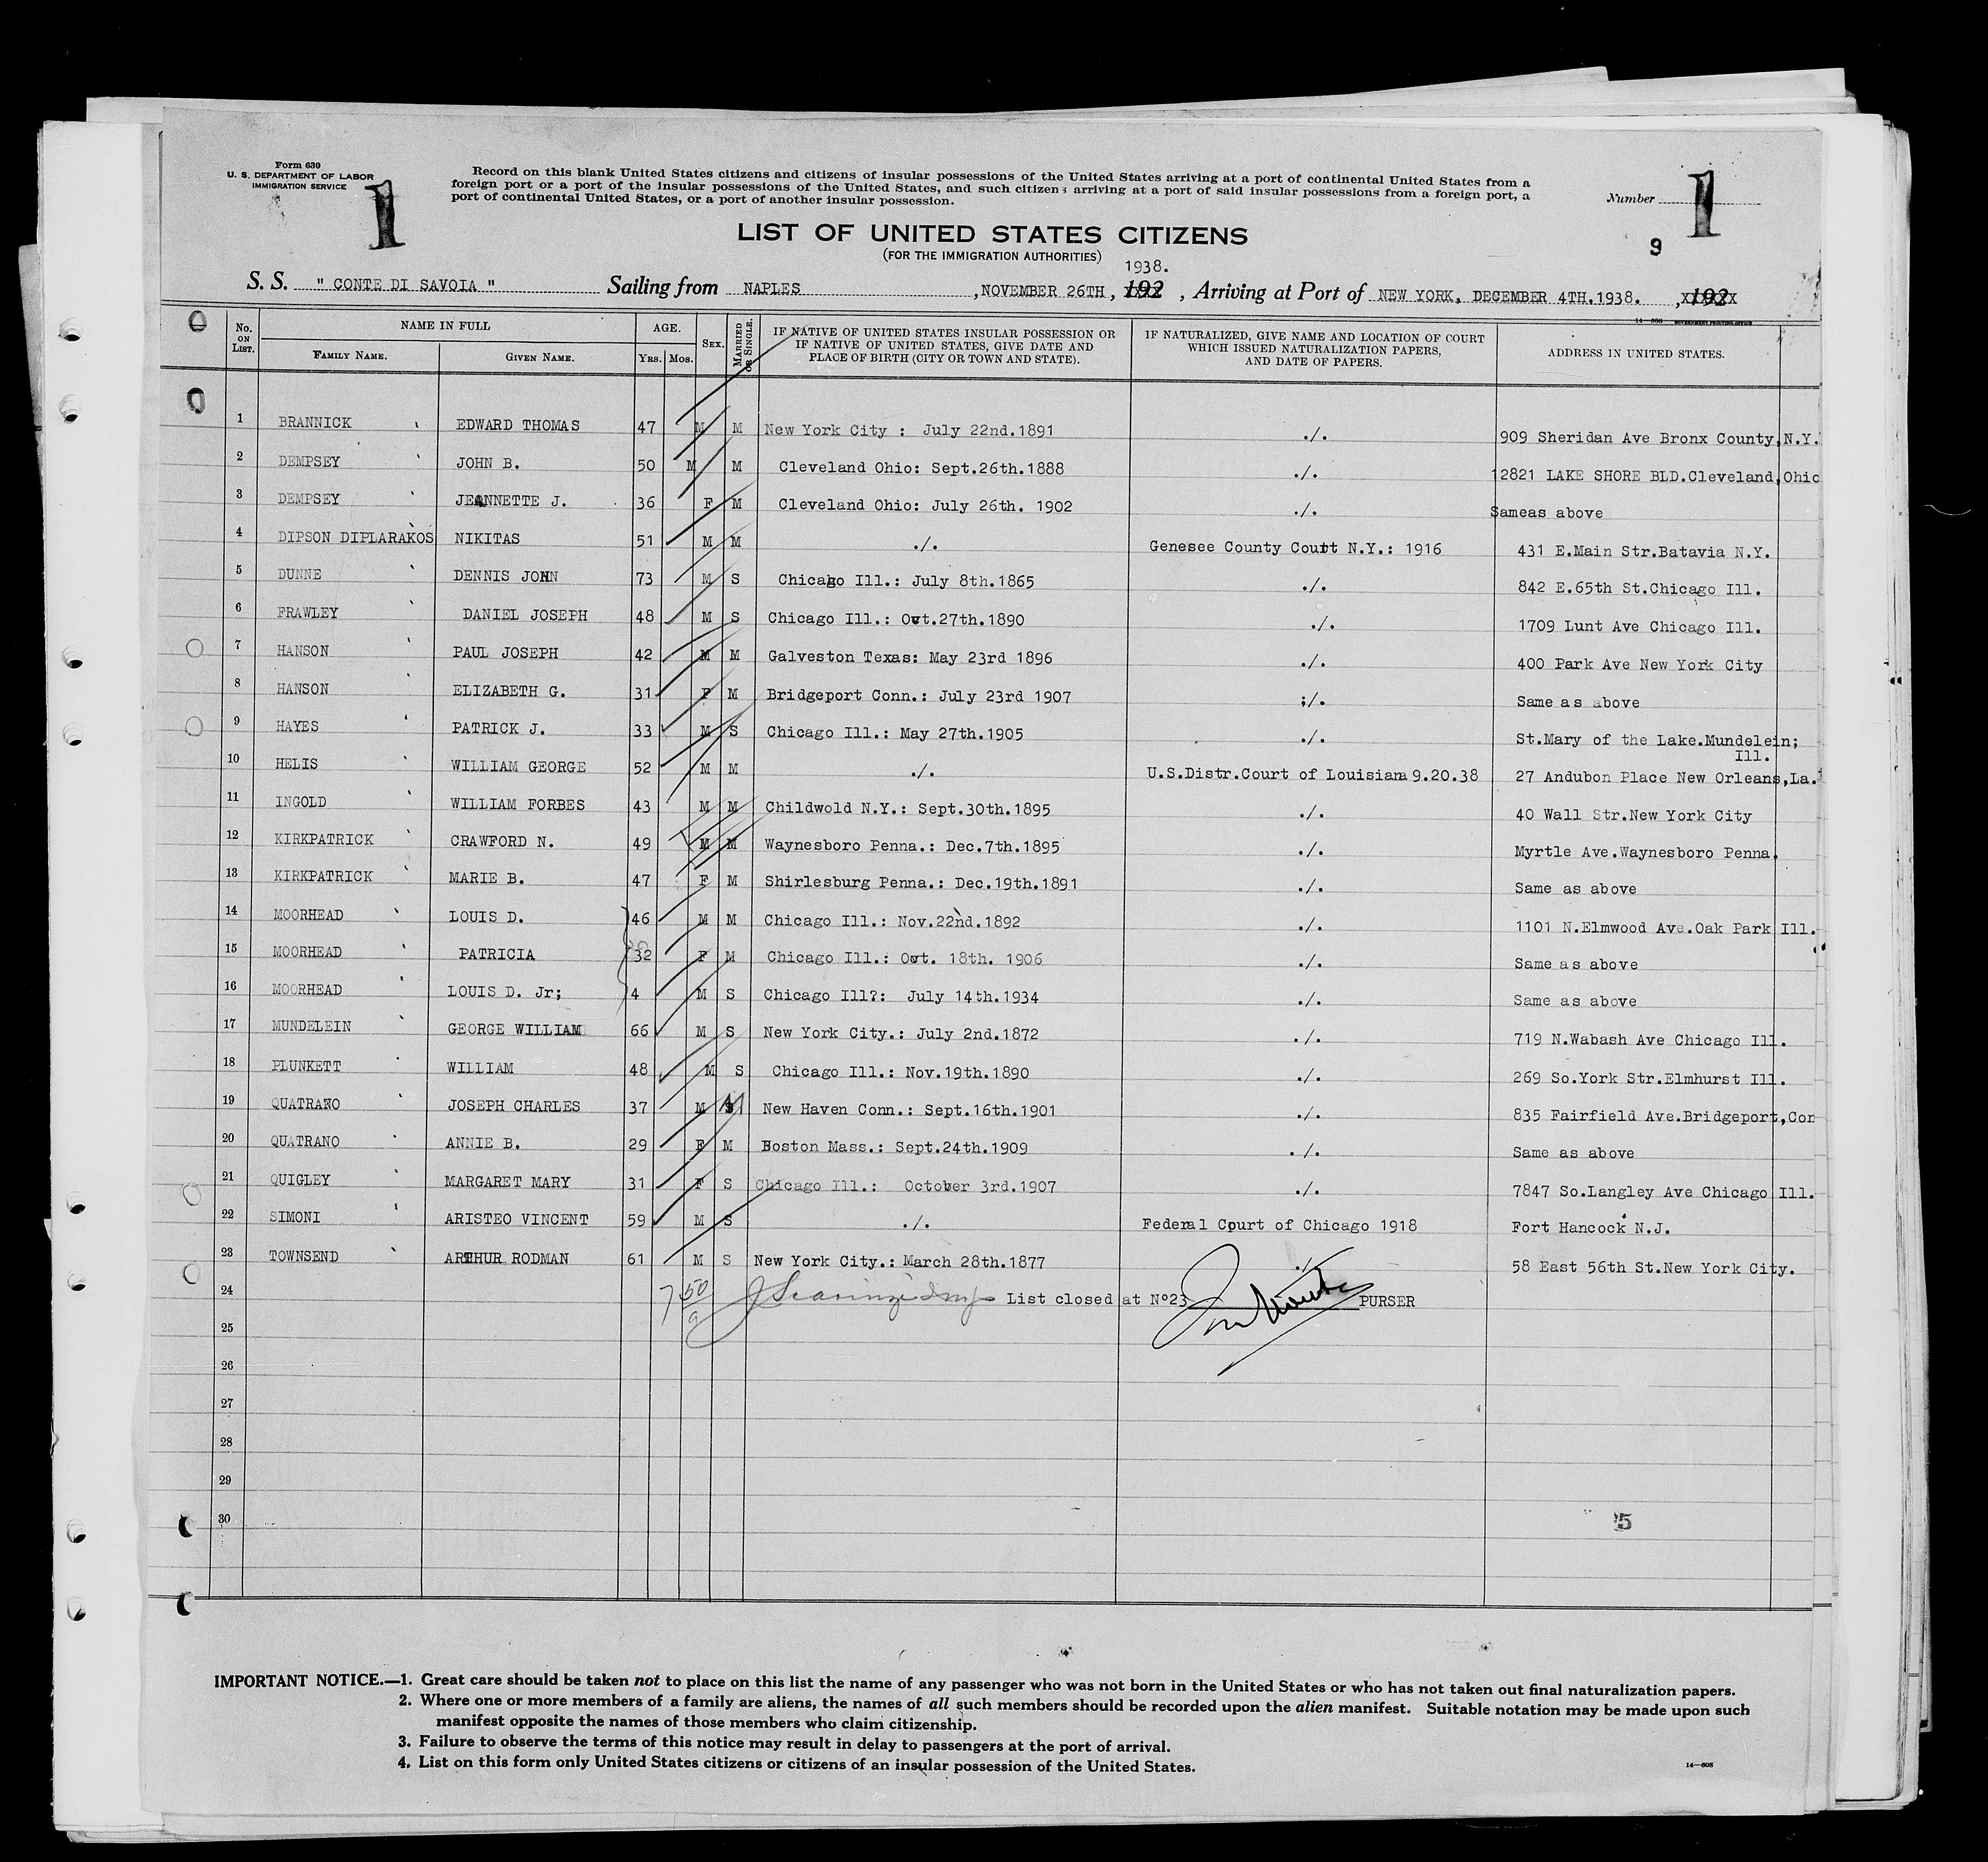 Form 630
U. S. DEPARTMENT OF LABOR
IMMIGRATION SERVICE
1
Record on this blank United States citizens and citizens of insular possessions of the United States arriving at a port of continental United States from a
foreign port or a port of the insular possessions of the United States, and such citizens arriving at a port of said insular possessions from a foreign port, a
port of continental United States, or a port of another insular possession.
Number 1
LIST OF UNITED STATES CITIZENS
(FOR THE IMMIGRATION AUTHORITIES)
9
1938.
S. S. " CONTE DI SAVOIA " Sailing from NAPLES , NOVEMBER 26TH , 192 , Arriving at Port of NEW YORK, DECEMBER 4TH.1938. , 192
14—608 GOVERNMENT PRINTING OFFICE
No. ON LIST. NAME IN FULL AGE. SEX. MARRIED OR SINGLE. IF NATIVE OF UNITED STATES INSULAR POSSESSION OR IF NATIVE OF UNITED STATES, GIVE DATE AND PLACE OF BIRTH (CITY OR TOWN AND STATE). IF NATURALIZED, GIVE NAME AND LOCATION OF COURT WHICH ISSUED NATURALIZATION PAPERS, AND DATE OF PAPERS. ADDRESS IN UNITED STATES.
FAMILY NAME. GIVEN NAME. YRS. MOS.
1 BRANNICK EDWARD THOMAS 47 M M New York City : July 22nd.1891 ./. 909 Sheridan Ave Bronx County,N.Y.
2 DEMPSEY JOHN B. 50 M M Cleveland Ohio: Sept.26th.1888 ./. 12821 LAKE SHORE BLD.Cleveland,Ohio
3 DEMPSEY JEANNETTE J. 36 F M Cleveland Ohio: July 26th. 1902 ./. Sameas above
4 DIPSON DIPLARAKOS NIKITAS 51 M M ./. Genesee County Court N.Y.: 1916 431 E.Main Str.Batavia N.Y.
5 DUNNE DENNIS JOHN 73 M S Chicago Ill.: July 8th.1865 ./. 842 E.65th St.Chicago Ill.
6 FRAWLEY DANIEL JOSEPH 48 M S Chicago Ill.: Oct.27th.1890 ./. 1709 Lunt Ave Chicago Ill.
7 HANSON PAUL JOSEPH 42 M M Galveston Texas: May 23rd 1896 ./. 400 Park Ave New York City
8 HANSON ELIZABETH G. 31 F M Bridgeport Conn.: July 23rd 1907 ;/. Same as above
9 HAYES PATRICK J. 33 M S Chicago Ill.: May 27th.1905 ./. St.Mary of the Lake.Mundelein;
Ill.
10 HELIS WILLIAM GEORGE 52 M M ./. U.S.Distr.Court of Louisiana 9.20.38 27 Andubon Place New Orleans,La.
11 INGOLD WILLIAM FORBES 43 M M Childwold N.Y.: Sept.30th.1895 ./. 40 Wall Str.New York City
12 KIRKPATRICK CRAWFORD N. 49 M M Waynesboro Penna.: Dec.7th.1895 ./. Myrtle Ave.Waynesboro Penna.
13 KIRKPATRICK MARIE B. 47 F M Shirlesburg Penna.: Dec.19th.1891 ./. Same as above
14 MOORHEAD LOUIS D. 46 M M Chicago Ill.: Nov.22nd.1892 ./. 1101 N.Elmwood Ave.Oak Park Ill.
15 MOORHEAD PATRICIA 32 F M Chicago Ill.: Oct. 18th. 1906 ./. Same as above
16 MOORHEAD LOUIS D. Jr; 4 M S Chicago Ill?: July 14th.1934 ./. Same as above
17 MUNDELEIN GEORGE WILLIAM 66 M S New York City.: July 2nd.1872 ./. 719 N.Wabash Ave Chicago Ill.
18 PLUNKETT WILLIAM 48 M S Chicago Ill.: Nov.19th.1890 ./. 269 So.York Str.Elmhurst Ill.
19 QUATRANO JOSEPH CHARLES 37 M M New Haven Conn.: Sept.16th.1901 ./. 835 Fairfield Ave.Bridgeport,Con
20 QUATRANO ANNIE B. 29 F M Boston Mass.: Sept.24th.1909 ./. Same as above
21 QUIGLEY MARGARET MARY 31 F S Chicago Ill.: October 3rd.1907 ./. 7847 So.Langley Ave Chicago Ill.
22 SIMONI ARISTEO VINCENT 59 M S ./. Federal Court of Chicago 1918 Fort Hancock N.J.
23 TOWNSEND ARTHUR RODMAN 61 M S New York City.: March 28th.1877 ./. 58 East 56th St.New York City.
24 List closed at Nº23 PURSER
25
26
27
28
29
30
5
IMPORTANT NOTICE.—1. Great care should be taken not to place on this list the name of any passenger who was not born in the United States or who has not taken out final naturalization papers.
2. Where one or more members of a family are aliens, the names of all such members should be recorded upon the alien manifest. Suitable notation may be made upon such
manifest opposite the names of those members who claim citizenship.
3. Failure to observe the terms of this notice may result in delay to passengers at the port of arrival.
4. List on this form only United States citizens or citizens of an insular possession of the United States.
14—608